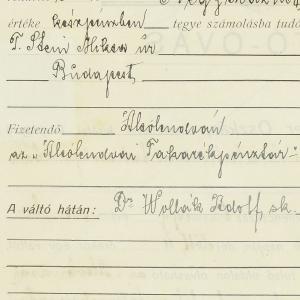 értéke készpénzben tegye számolásba tudó
T. Stein Miksa úr
Budapest,
Fizetendő Alsólendván
az „Alsólendvai Takarékpénztár"
A váltó hátán: Dr Wollák Adolf, sk.